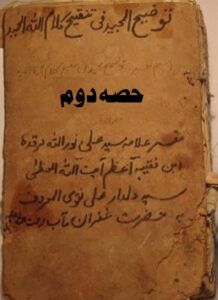 توضیح المجید فی تنقیح کلام اللہ الحمید
حصہ دوم
مفسر علامہ سید علی نور اللہ مرقدہ
ابن فقیہ اعظم آیت اللہ العظمیٰ
سید دلدار علی نقوی المعروف
بہ حضرت غفران مآب